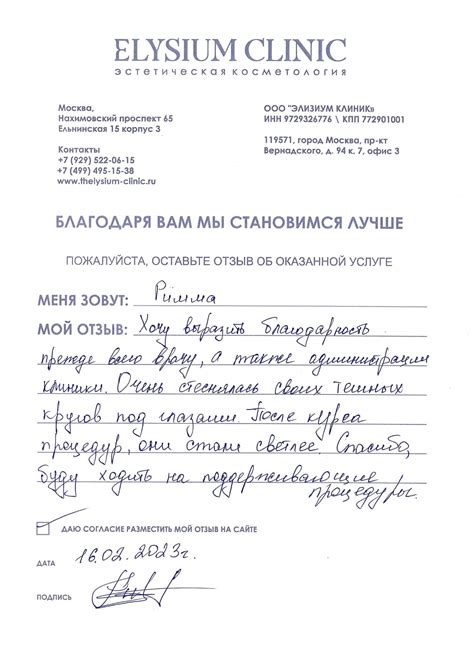 ELYSIUM CLINIC
ЭСТЕТИЧЕСКАЯ КОСМЕТОЛОГИЯ
Москва,
Нахимовский проспект 65
Ельнинская 15 корпус 3
Контакты
+7 (929) 522-06-15
+7 (499) 495-15-38
www.thelysium-clinic.ru
ООО "ЭЛИЗИУМ КЛИНИК»
ИНН 9729326776 \ КПП 772901001
119571, город Москва, пр-кт
Вернадского, д. 94 к. 7, офис 3
БЛАГОДАРЯ ВАМ МЫ СТАНОВИМСЯ ЛУЧШЕ
ПОЖАЛУЙСТА, ОСТАВЬТЕ ОТЗЫВ ОБ ОКАЗАННОЙ УСЛУГЕ
МЕНЯ ЗОВУТ: Римма
МОЙ ОТЗЫВ: Хочу выразить благодарность
прежде всего врачу, а также администрации
клиники. Очень стеснялась своих темных
кругов под глазами. После курса
процедур, они стали светлее. Спасибо,
буду ходить на поддерживающие
процедуры.
ДАЮ СОГЛАСИЕ РАЗМЕСТИТЬ МОЙ ОТЗЫВ НА САЙТЕ
ДАТА 16.02.2023г.
ПОДПИСЬ